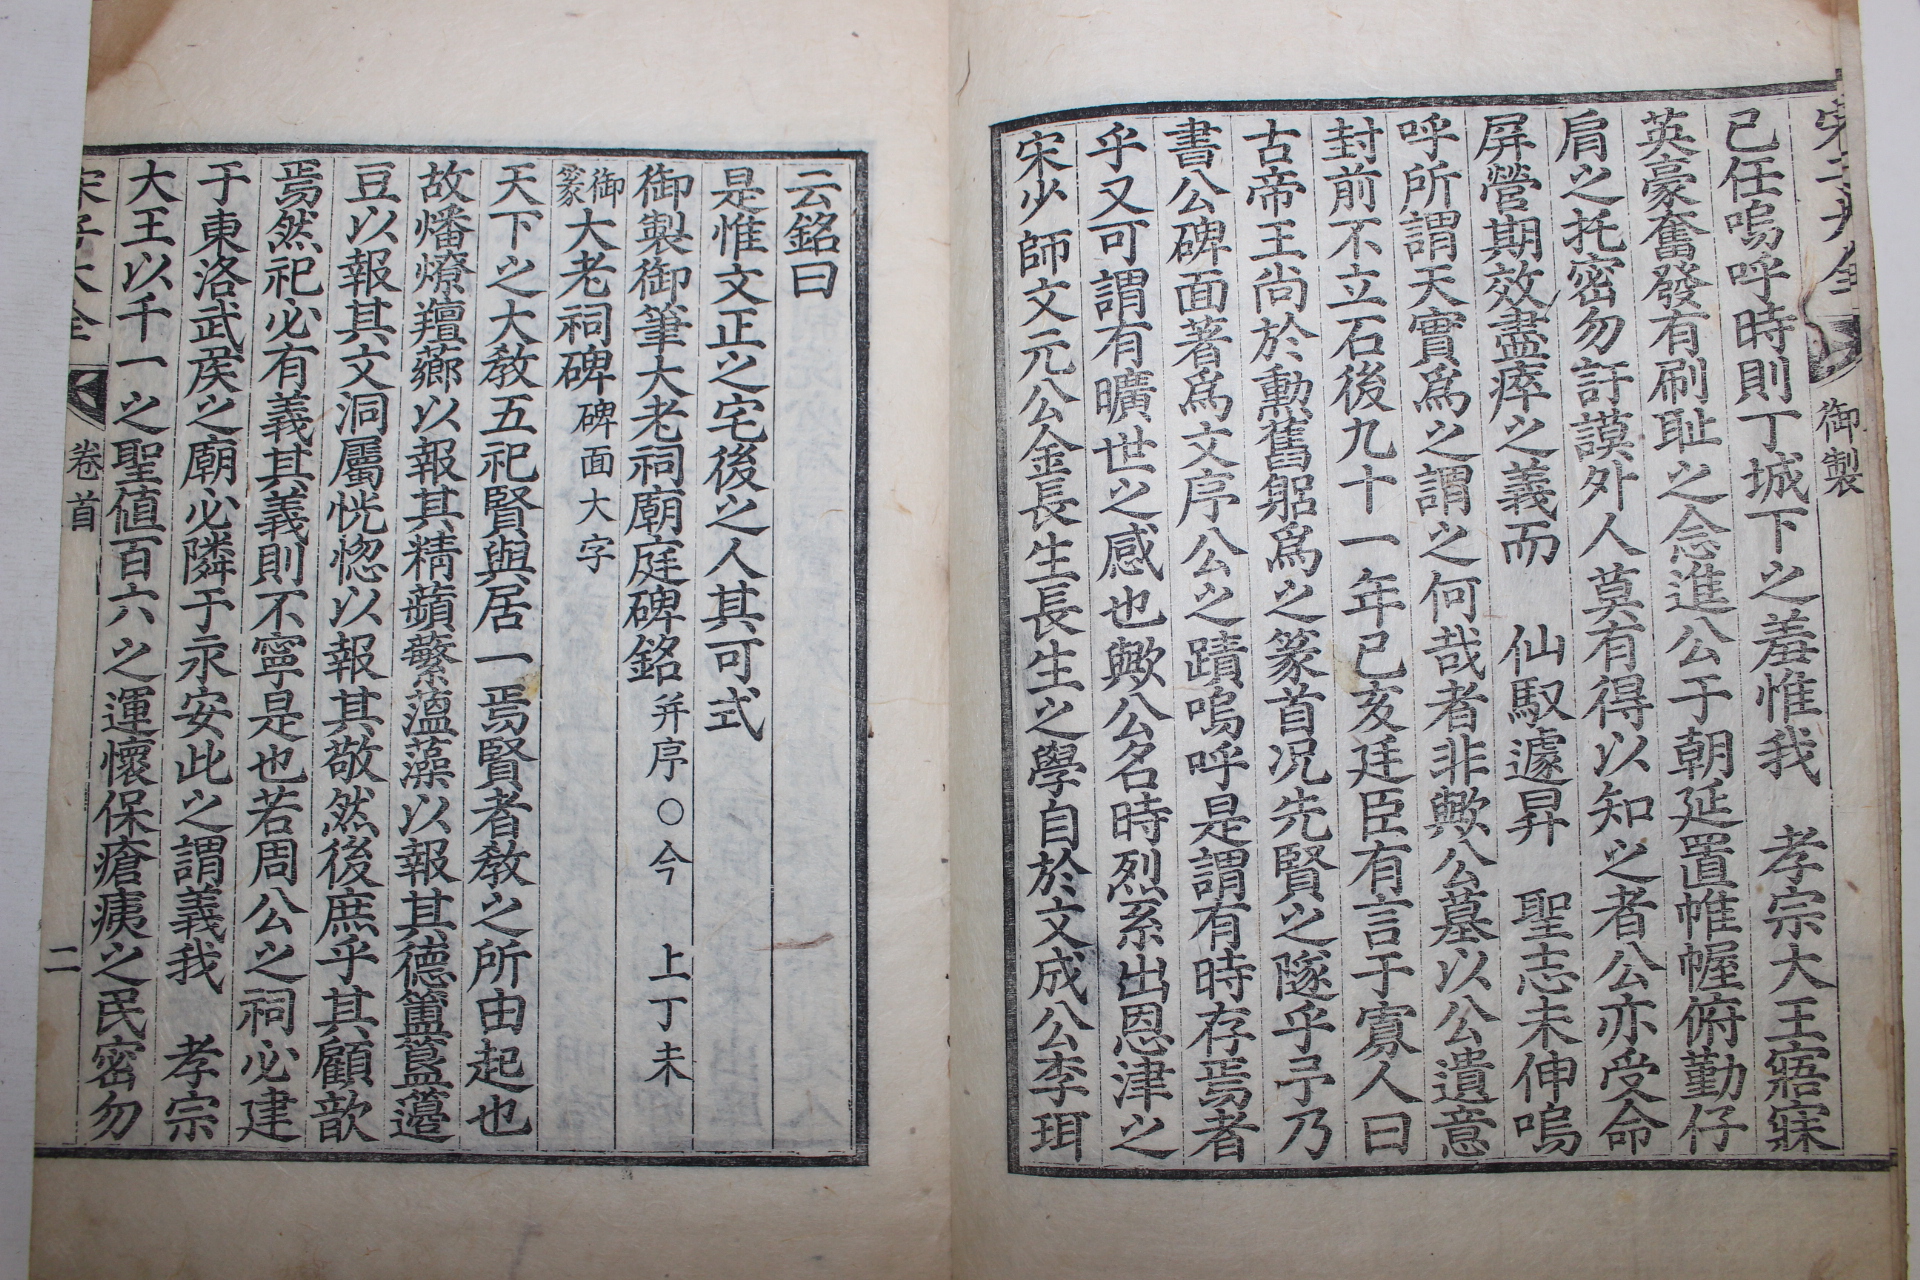 宋子大全
御製
己任嗚呼時則丁城下之羞惟我 孝宗大王寤寐
英豪奮發有刷耻之念進公于朝延置帷幄俯勤仔
肩之托密勿訏謨外人莫有得以知之者公亦受命
屏營期效盡瘁之義而 仙馭遽昇 聖志未伸嗚
呼所謂天實爲之謂之何哉者非歟公墓以公遺意
封前不立石後九十一年己亥廷臣有言于寡人曰
古帝王尚於勳舊躬爲之篆首况先賢之隧乎予乃
書公碑面著爲文序公之蹟嗚呼是謂有時存焉者
乎又可謂有曠世之感也歟公名時烈系出恩津之
宋少師文元公金長生長生之學自於文成公李珥
云銘曰
是惟文正之宅後之人其可式
御製御筆大老祠廟庭碑銘 并序○今 上丁未
御篆大老祠碑 碑面大字
天下之大教五祀賢與居一焉賢者教之所由起也
故燔燎羶薌以報其精蘋蘩薀藻以報其德簠簋籩
豆以報其文洞屬恍惚以報其敬然後庶乎其顧歆
焉然祀必有義其義則不寧是也若周公之祠必建
于東洛武侯之廟必隣于永安此之謂義我 孝宗
大王以千一之聖値百六之運懷保瘡痍之民密勿
宋子大全
卷首
二